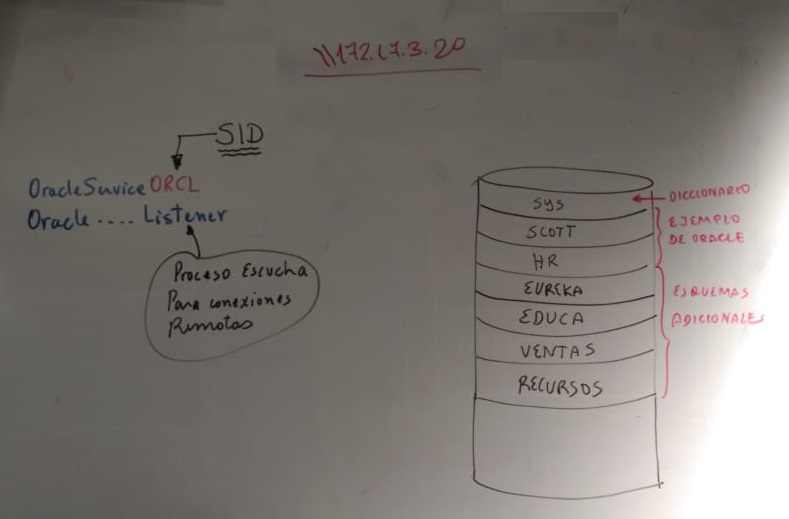 \\172.17.3.20
SID
OracleServiceORCL
Oracle .... Listener
Proceso Escucha
Para conexiones
Remotas
SYS
SCOTT
HR
EUREKA
EDUCA
VENTAS
RECURSOS
DICCIONARIO
EJEMPLO
DE ORACLE
ESQUEMAS
ADICIONALES